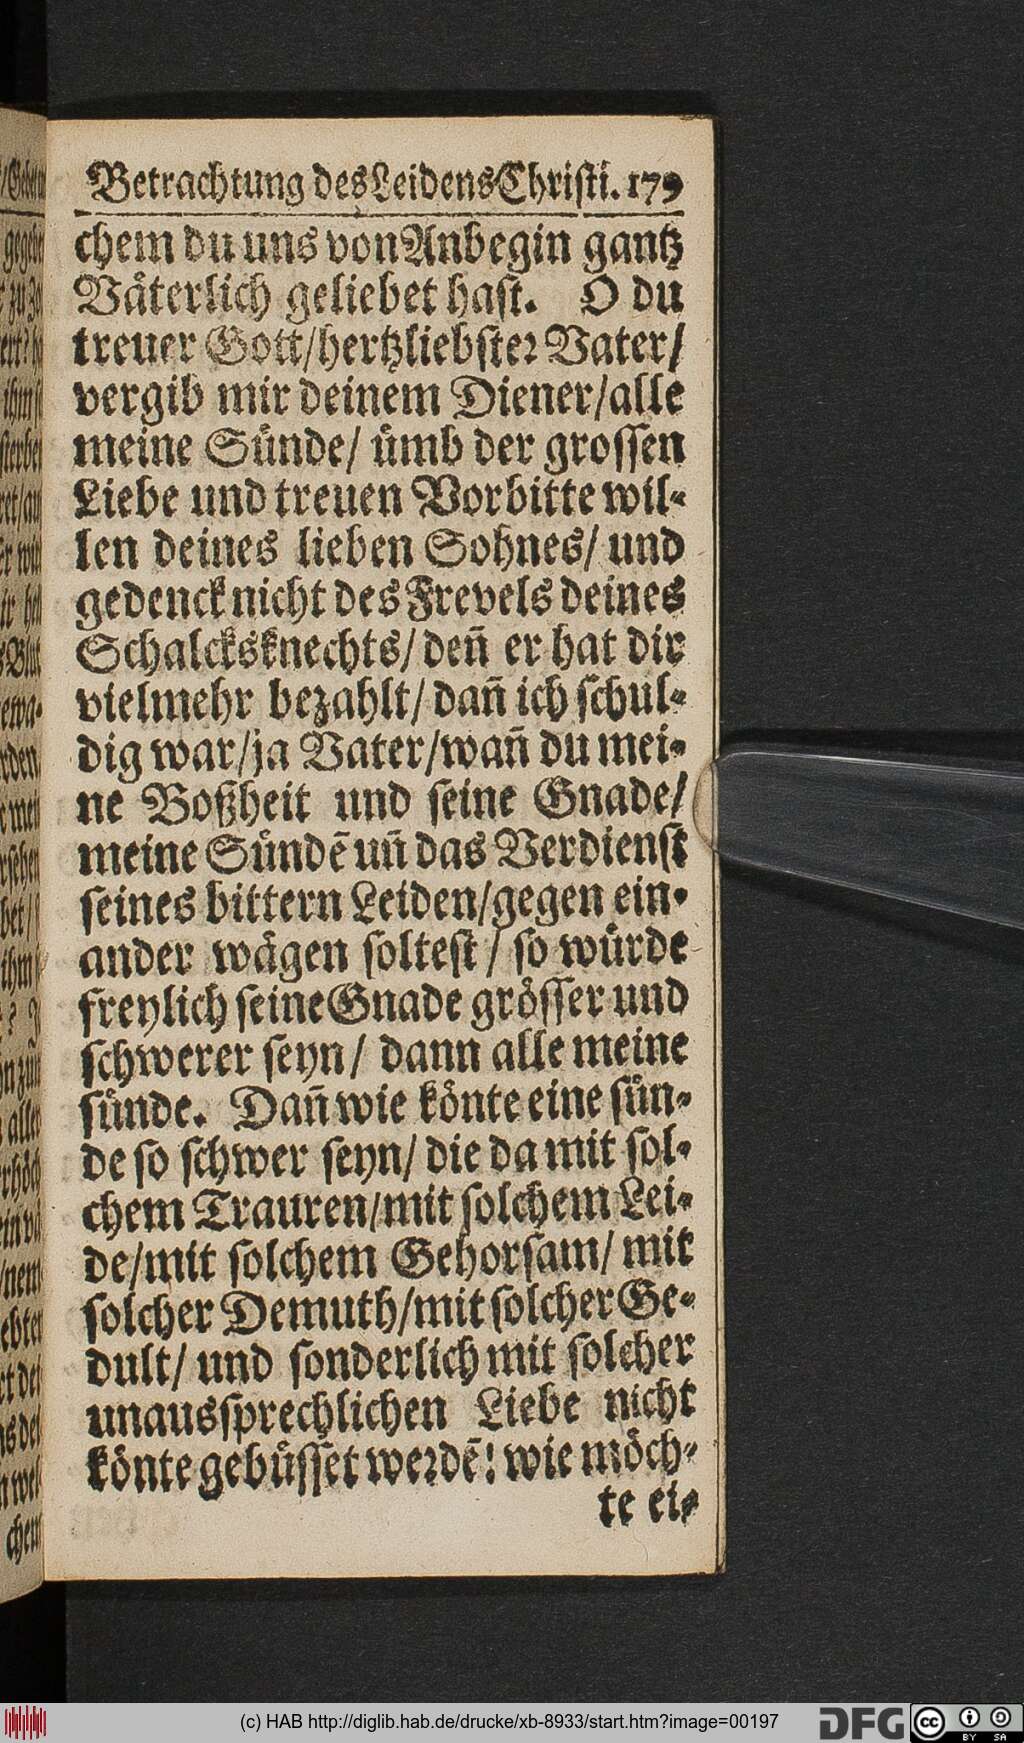 Betrachtung des Leidens Christi. 179
chem du uns von Anbegin gantz
Väterlich geliebet hast. O du
treuer Gott/hertzliebster Vater/
vergib mir deinem Diener/alle
meine Sünde/ ümb der grossen
Liebe und treuen Vorbitte wil-
len deines lieben Sohnes/ und
gedenck nicht des Frevels deines
Schalcksknechts/ deñ er hat dir
vielmehr bezahlt/ dañ ich schul-
dig war/ja Vater/wañ du mei-
ne Boßheit und seine Gnade/
meine Sündẽ uñ das Verdienst
seines bittern Leiden/gegen ein-
ander wägen soltest/ so würde
freylich seine Gnade grösser und
schwerer seyn/ dann alle meine
sünde. Dañ wie könte eine sün-
de so schwer seyn/ die da mit sol-
chem Trauren/mit solchem Lei-
de/mit solchem Gehorsam/ mit
solcher Demuth/mit solcher Ge-
dult/ und sonderlich mit solcher
unaussprechlichen Liebe nicht
könte gebüsset werdẽ! wie möch-
te ei-
(c) HAB http://diglib.hab.de/drucke/xb-8933/start.htm?image=00197
DFG
cc BY SA